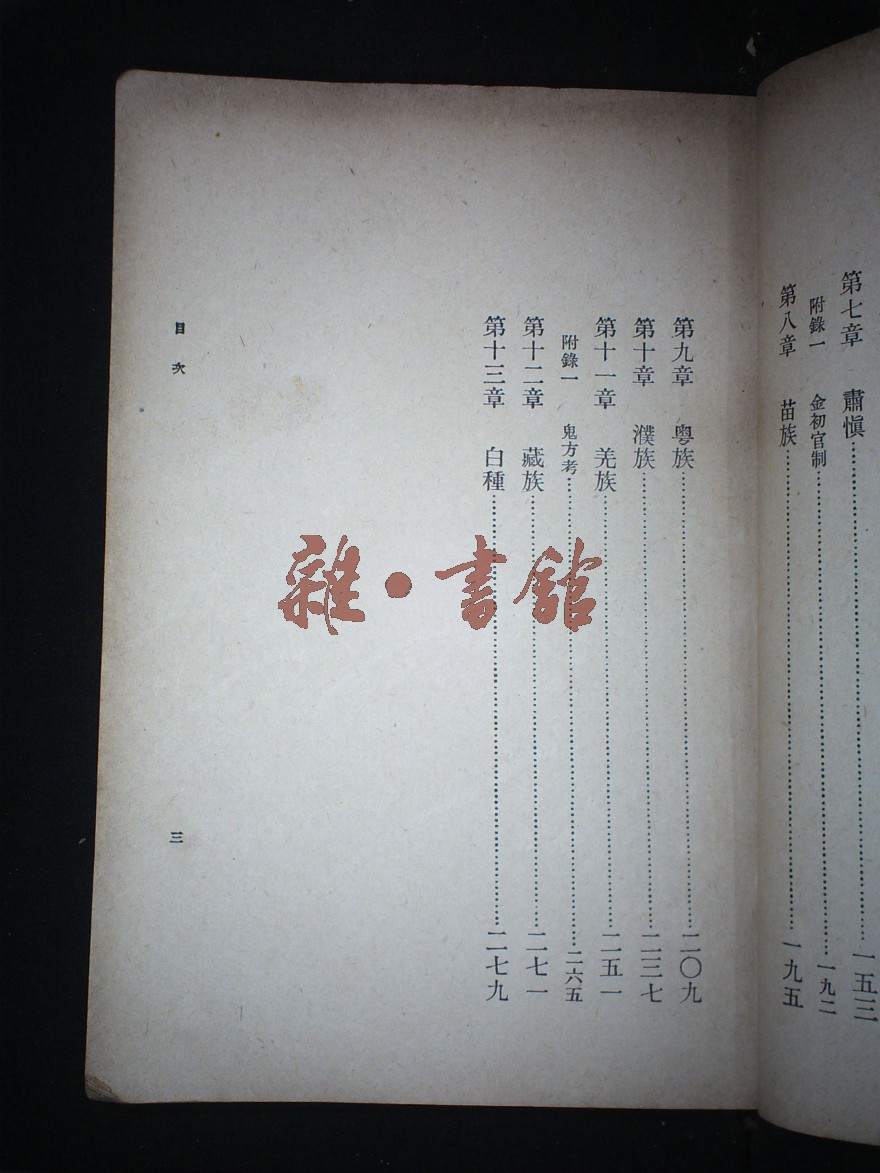 第七章　肅愼……一五三
附錄一　金初官制……一九二
第八章　苗族……一九五
第九章　粵族……二〇九
第十章　濮族……二三七
第十一章　羌族……二五一
附錄一　鬼方考……二六五
第十二章　藏族……二七一
第十三章　白種……二七九
目次
三
雜·書館